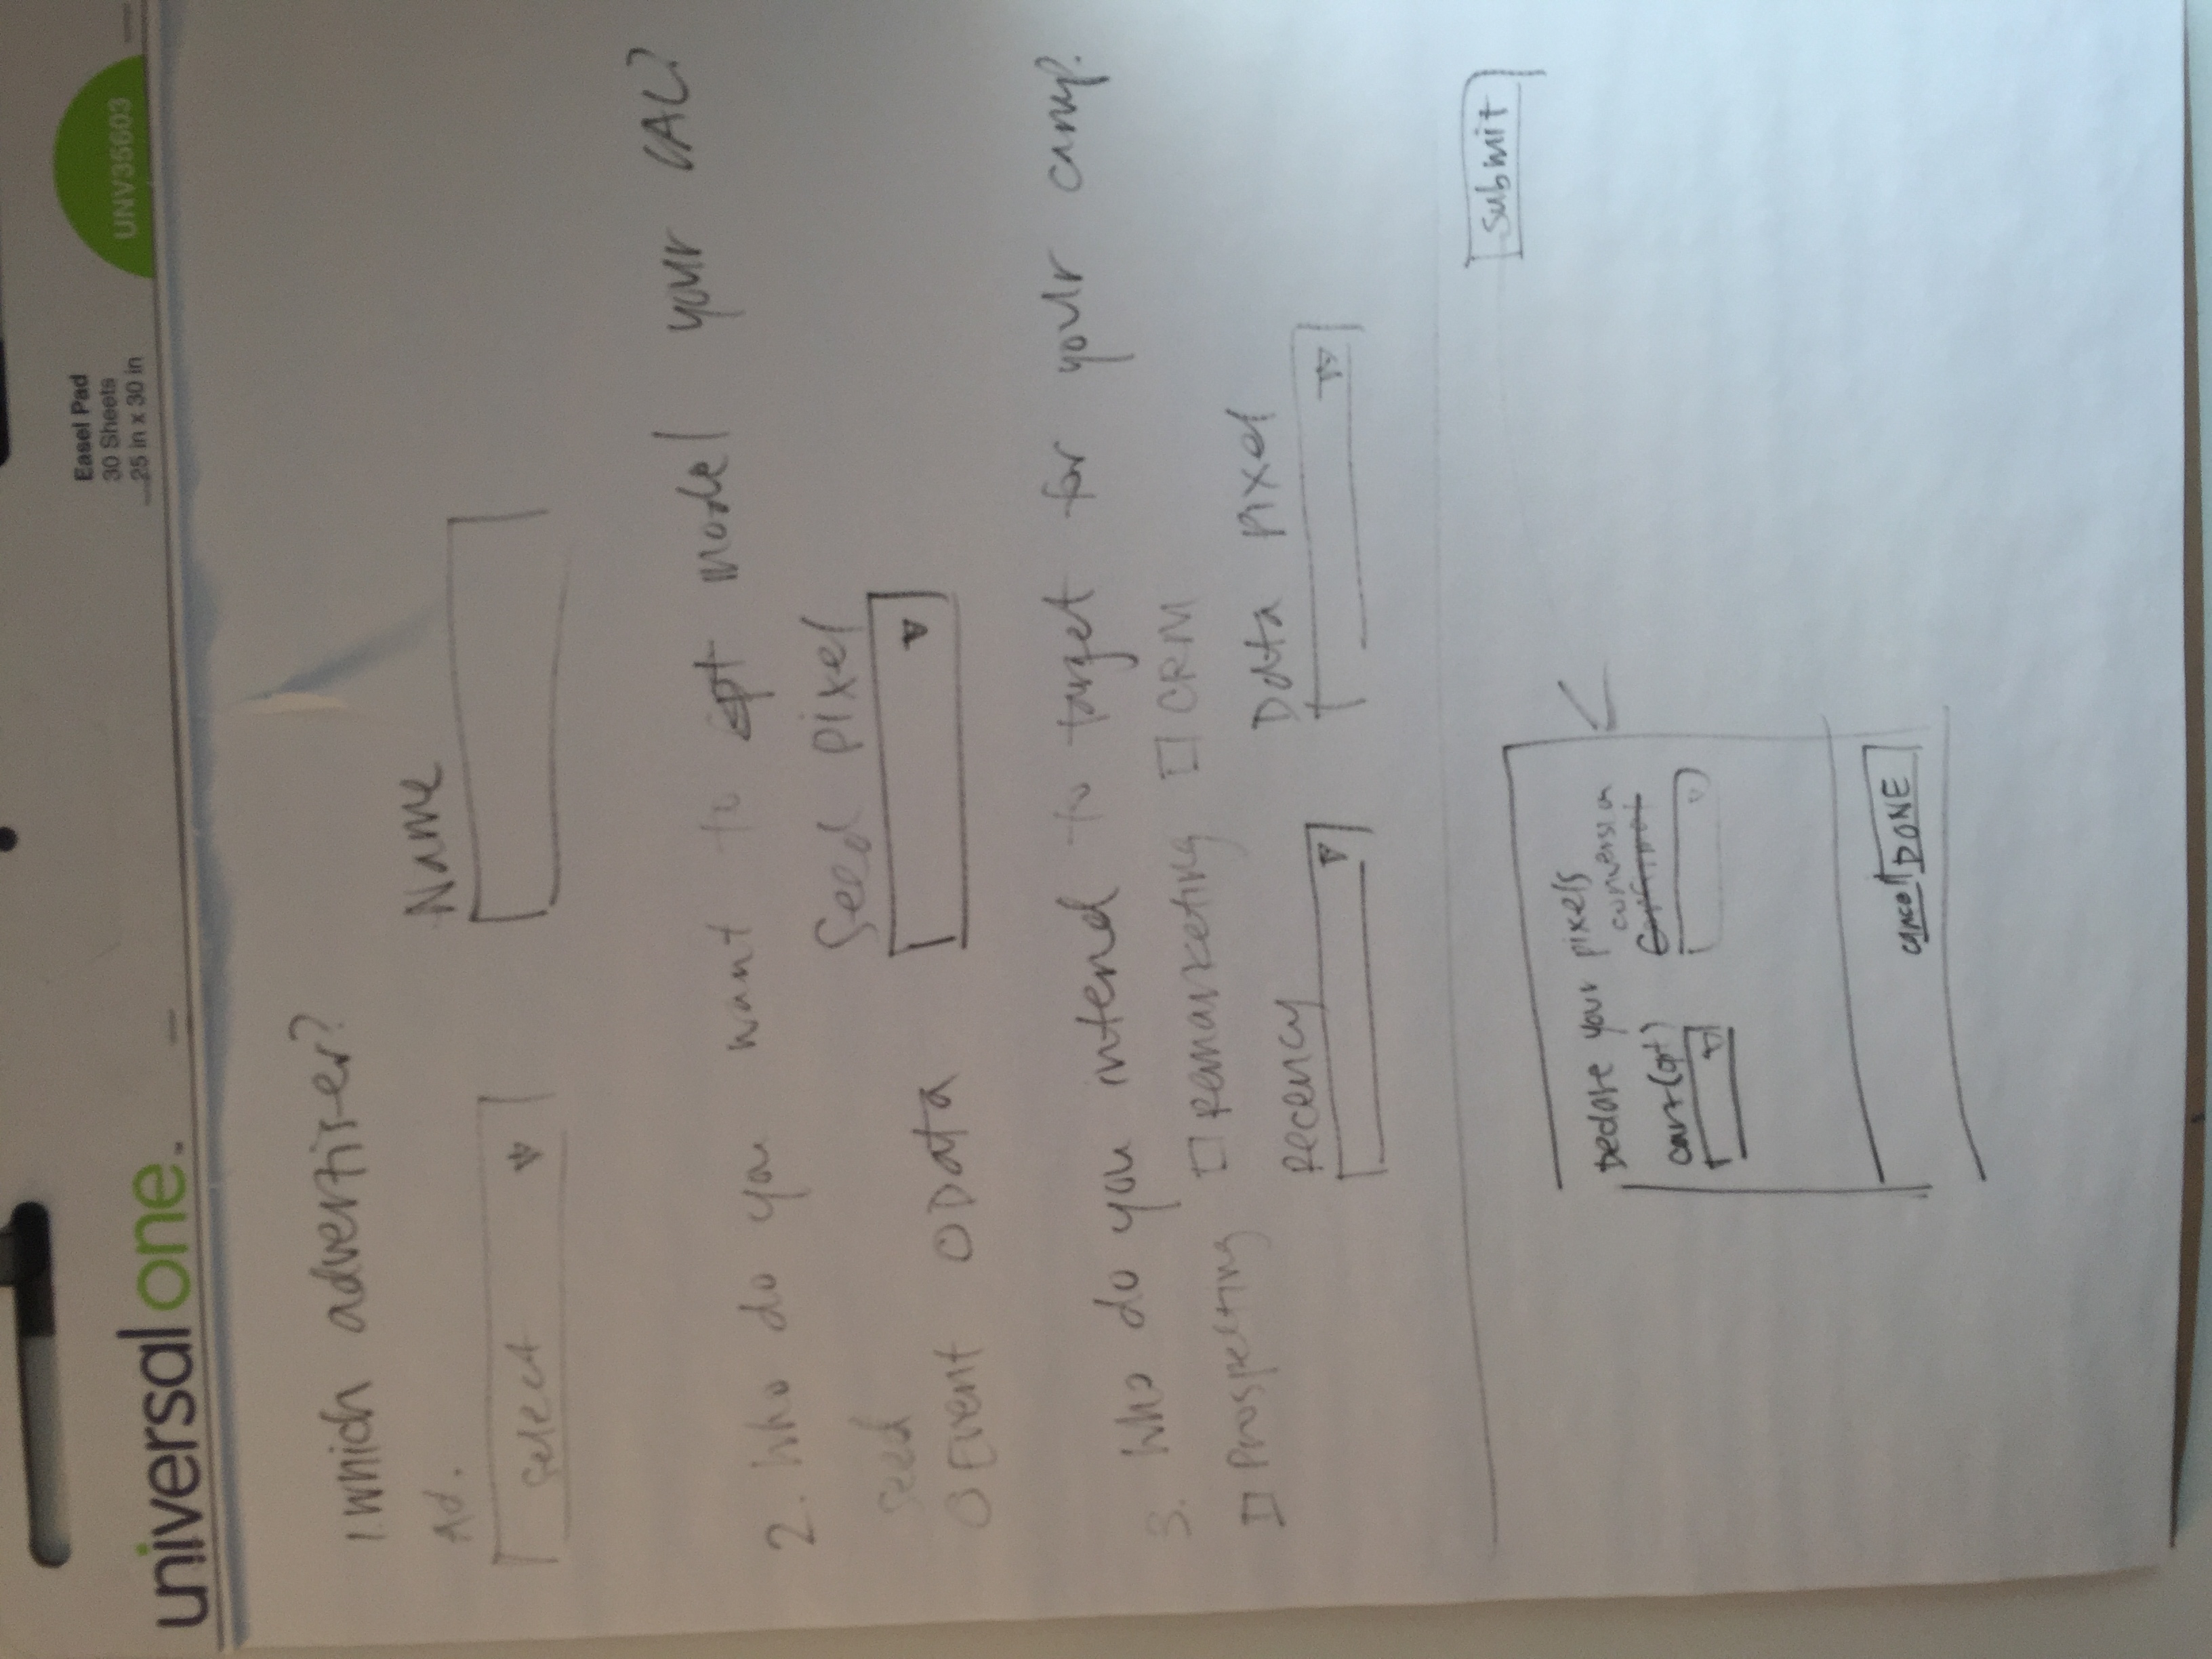 universal one.
Easel Pad
30 Sheets
25 in x 30 in
UNV35603
1. Which advertiser?
Ad.
Select
Name
2. Who do you want to opt model your CAL?
Seed
Event Data
Seed Pixel
3. Who do you intend to target for your camp.
Prospecting Remarketing CRM
Recency
Data Pixel
Submit
Declare your pixels
cart (opt)
conversion
cancel DONE